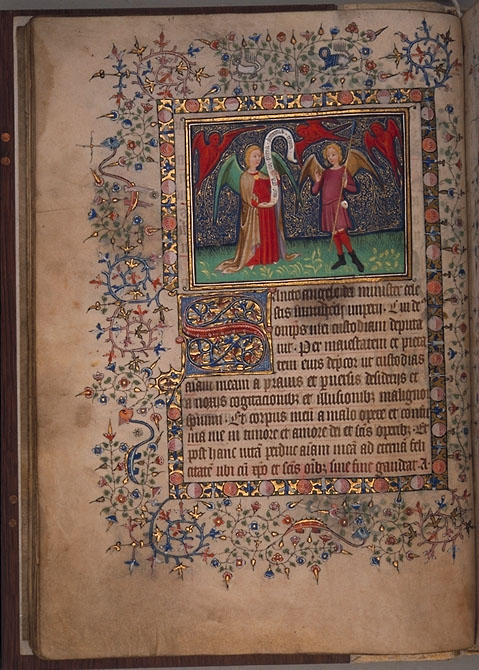 Sancte angele dei minister cele
stis imperii. Cui de
omps mei custodiam deputa
uit. Per maiestatem et pieta
tem eius dep̄cor ut custodias
aīam meam a prauis et desiderijs et
a noxijs cogitacionibȝ et illusionibȝ maligni
spiritus. Et corpus meū a malo opere et confir
ma me in timore et amore dei et sc̄is operibȝ. Et
post hanc uitā perduc aīam meā ad eternā feli
citatē ubi cū xp̄o et sc̄is oībȝ sine fine gaudeat. A